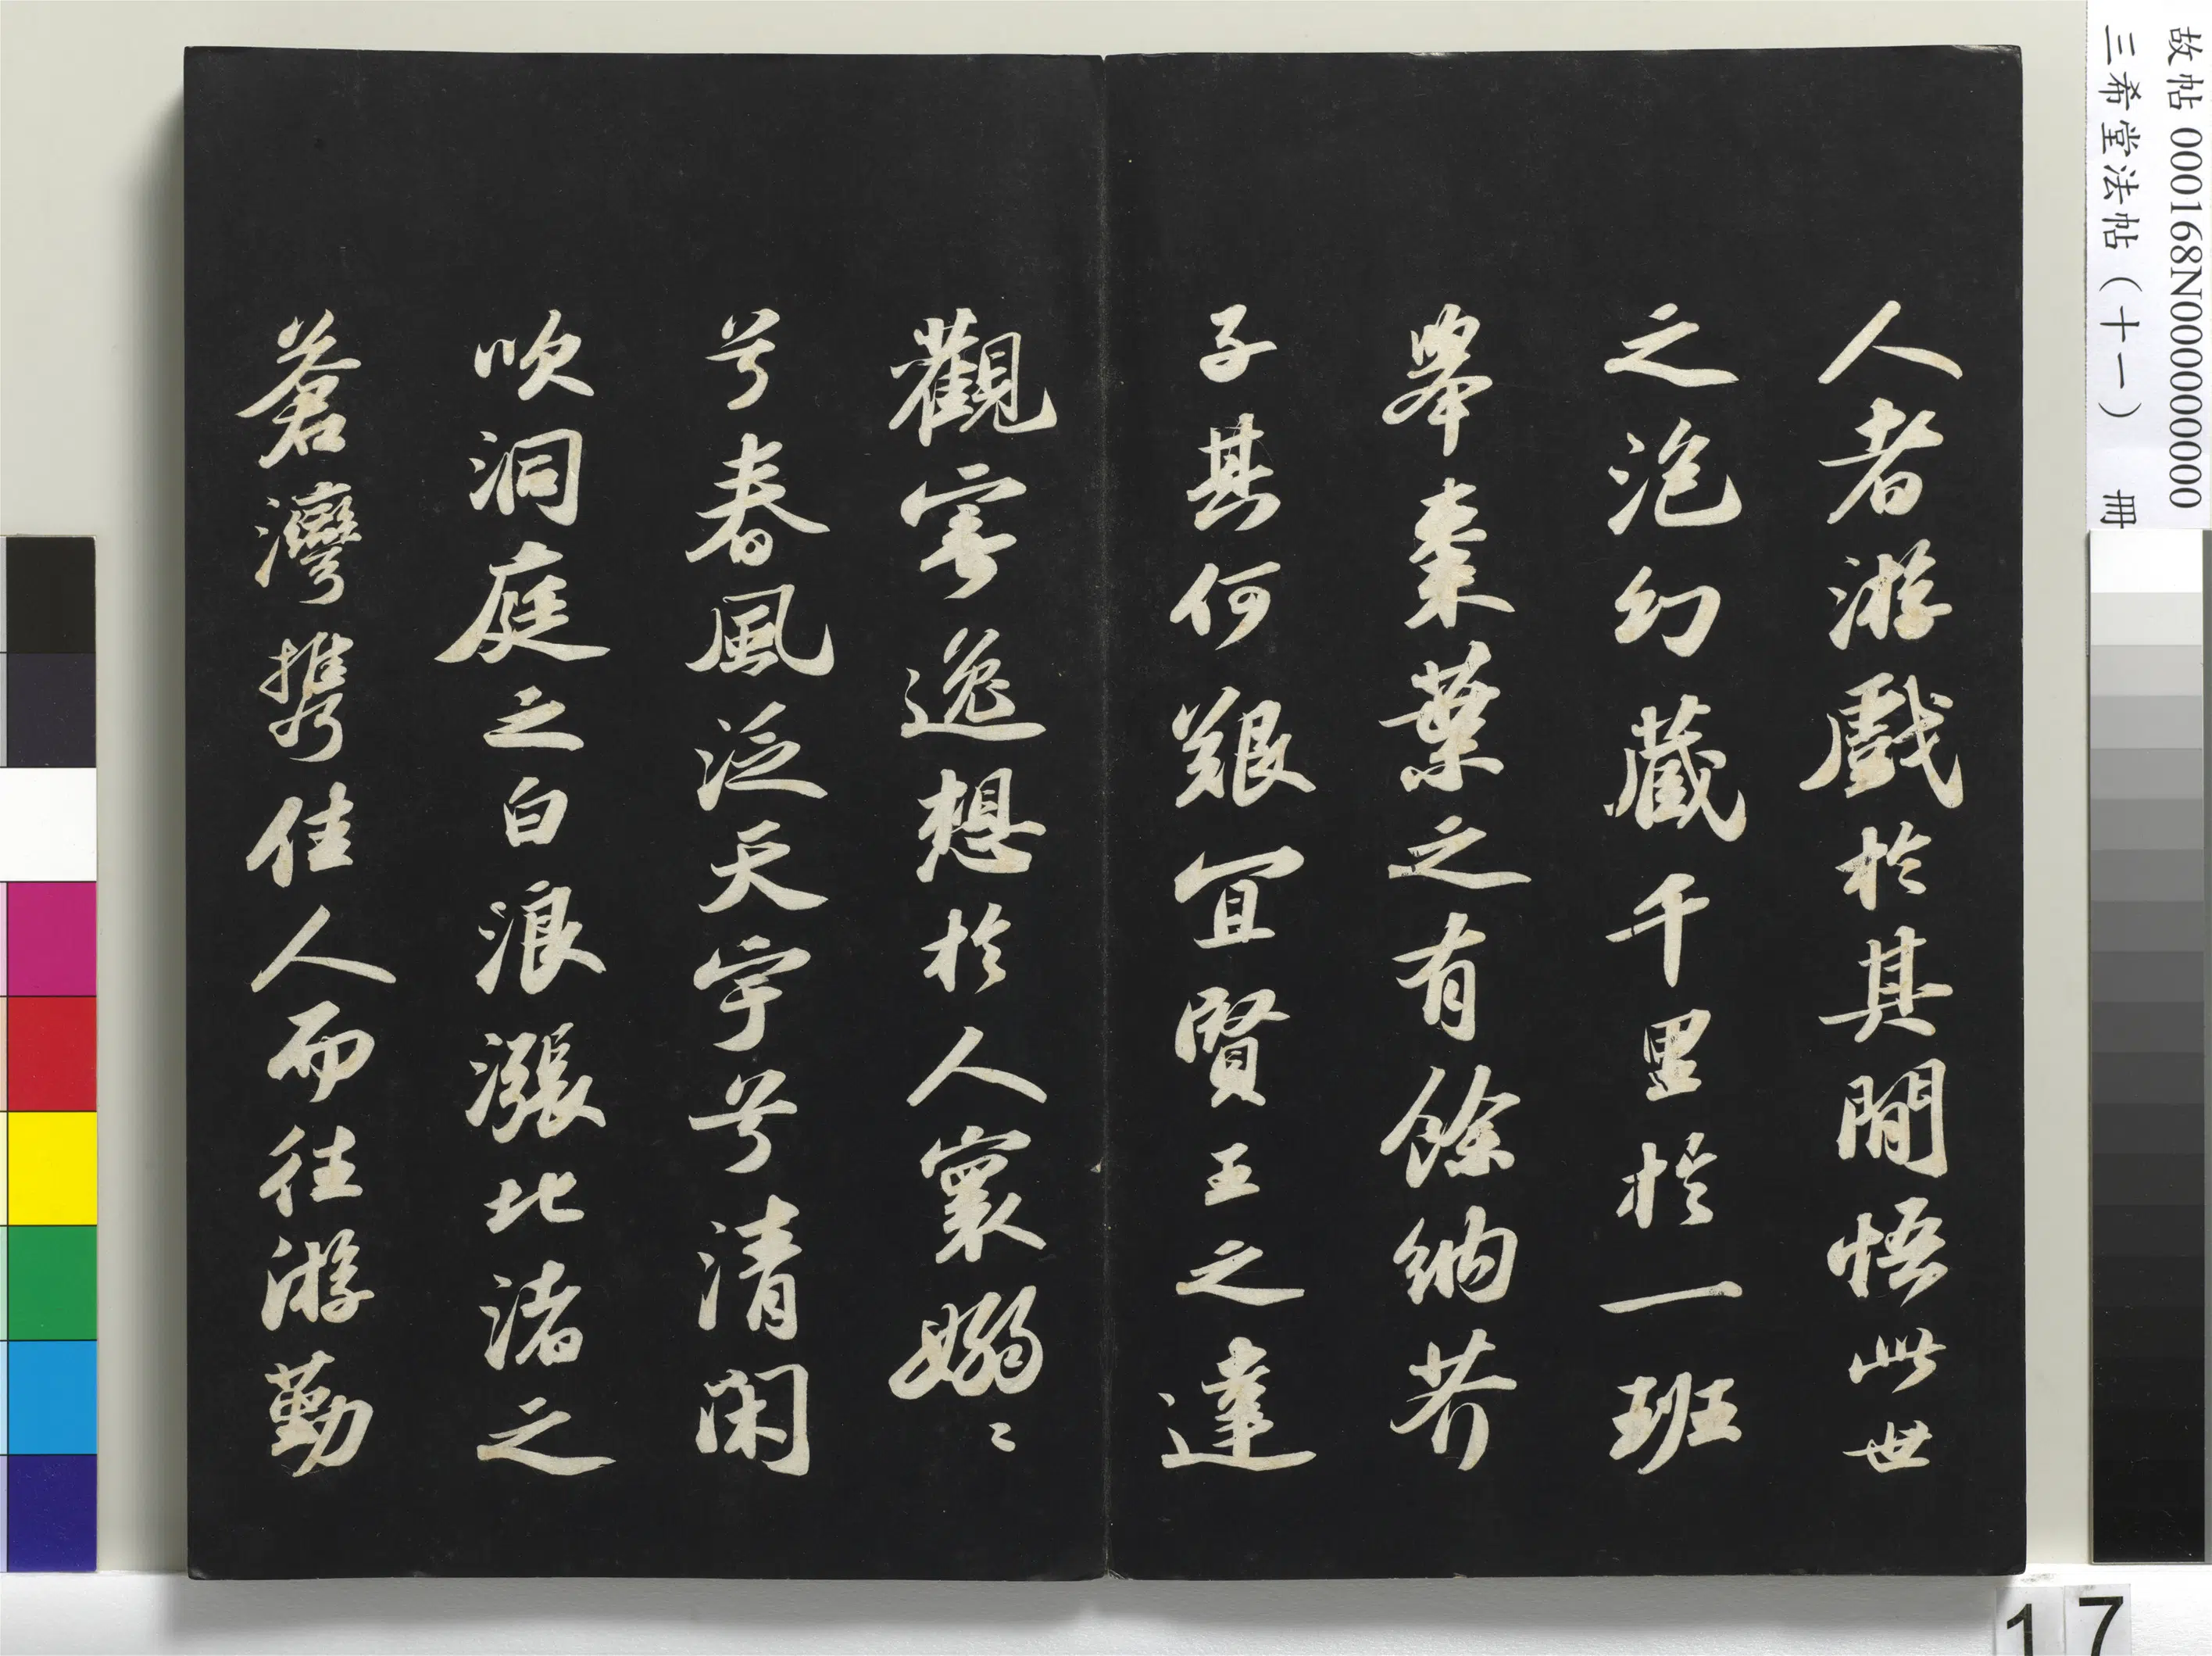 人者游戲於其閒悟此世
之泡幻藏千里於一班
舉棗葉之有餘納芥
子其何艱宜賢王之達
觀寄逸想於人寰嫋〻
兮春風泛天宇兮清閑
吹洞庭之白浪漲北渚之
蒼灣携佳人而往游勤
故帖 000168N000000000
三希堂法帖（十一） 冊
17